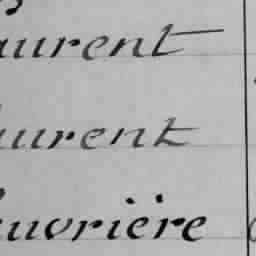 aurent
aurent
uvrière